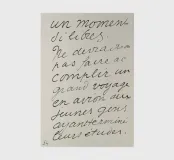 un moment
si libres.
Ne devrait-on
pas faire ac
complir un
grand voyage
en avion aux
jeunes gens
ayant terminé
leurs études.
54